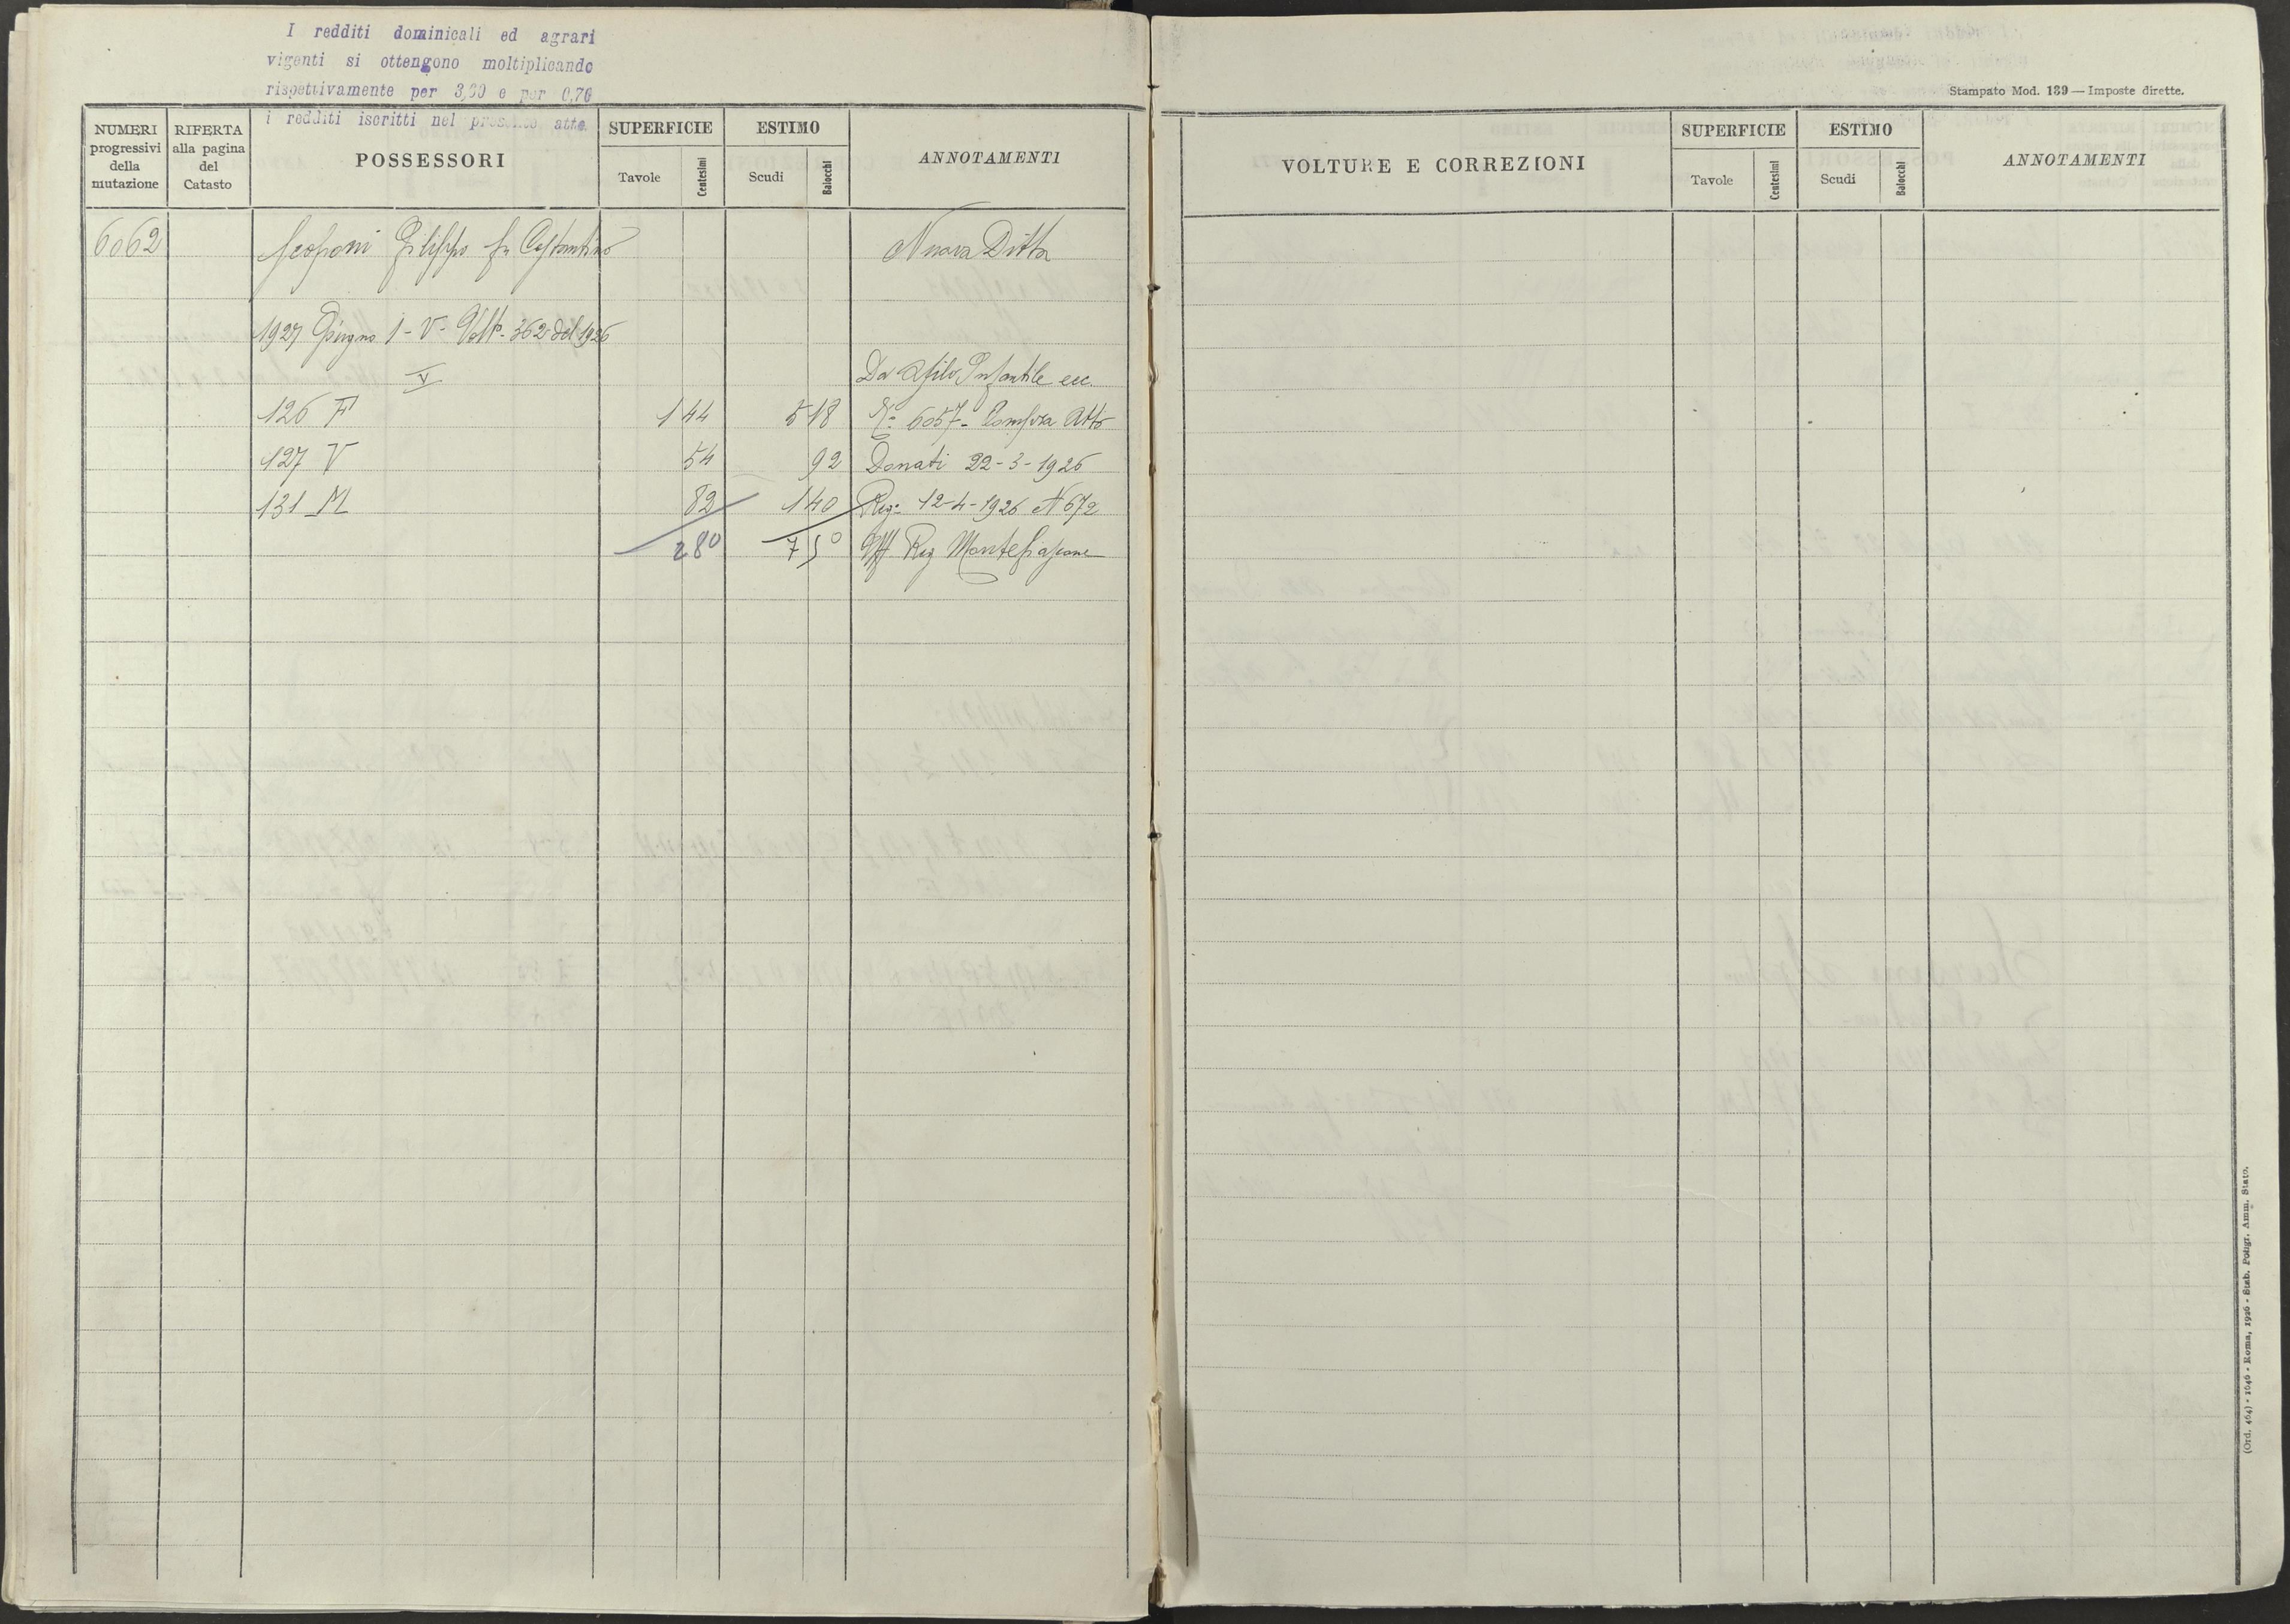 I redditi dominicali ed agrari
vigenti si ottengono moltiplicando
rispettivamente per 3,60 e per 0,70
i redditi iscritti nel presente atto.
NUMERI progressivi della mutazione
RIFERTA alla pagina del Catasto
POSSESSORI
SUPERFICIE
Tavole
Centesimi
ESTIMO
Scudi
Baiocchi
ANNOTAMENTI
6062 Scoponi Filippo fu Costantino Nuova Ditta
1927 Giugno 1 - V - Volt. 362 del 1926
V Da Asilo Infantile ecc.
126 F 1 44 5 18 N. 6057 - Compra Atto
127 V 54 92 Donati 22-3-1926
131 M 82 1 40 Reg. 12-4-1926 N 672
2 80 7 50 Uff Reg Montefiascone
Stampato Mod. 139 — Imposte dirette.
VOLTURE E CORREZIONI
SUPERFICIE
Tavole
Centesimi
ESTIMO
Scudi
Baiocchi
ANNOTAMENTI
(Ord. 464) - 1646 - Roma, 1926 - Stab. Poligr. Amm. Stato.